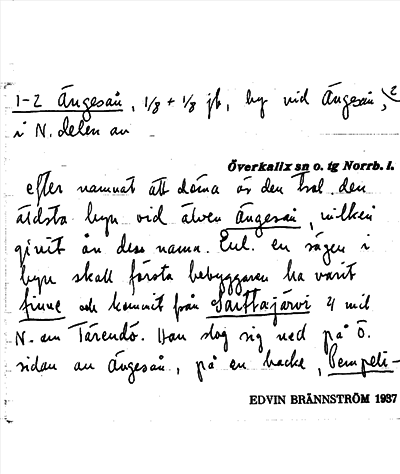 1-2 Ängesån, 1/8 + 1/8 jb, by vid Ängesån, 2
i N. delen av
Överkalix sn o. tg Norrb. l.
efter namnet att döma är den trol. den
äldsta byn vid älven Ängesån, vilken
givit ån dess namn. Enl. en sägen i
byn skall första bebyggaren ha varit
finne och kommit från Saittajärvi 4 mil
N. om Tärendö. Han slog sig ned på Ö.
sidan av Ängesån, på en backe, Pempeli-
EDVIN BRÄNNSTRÖM 1937